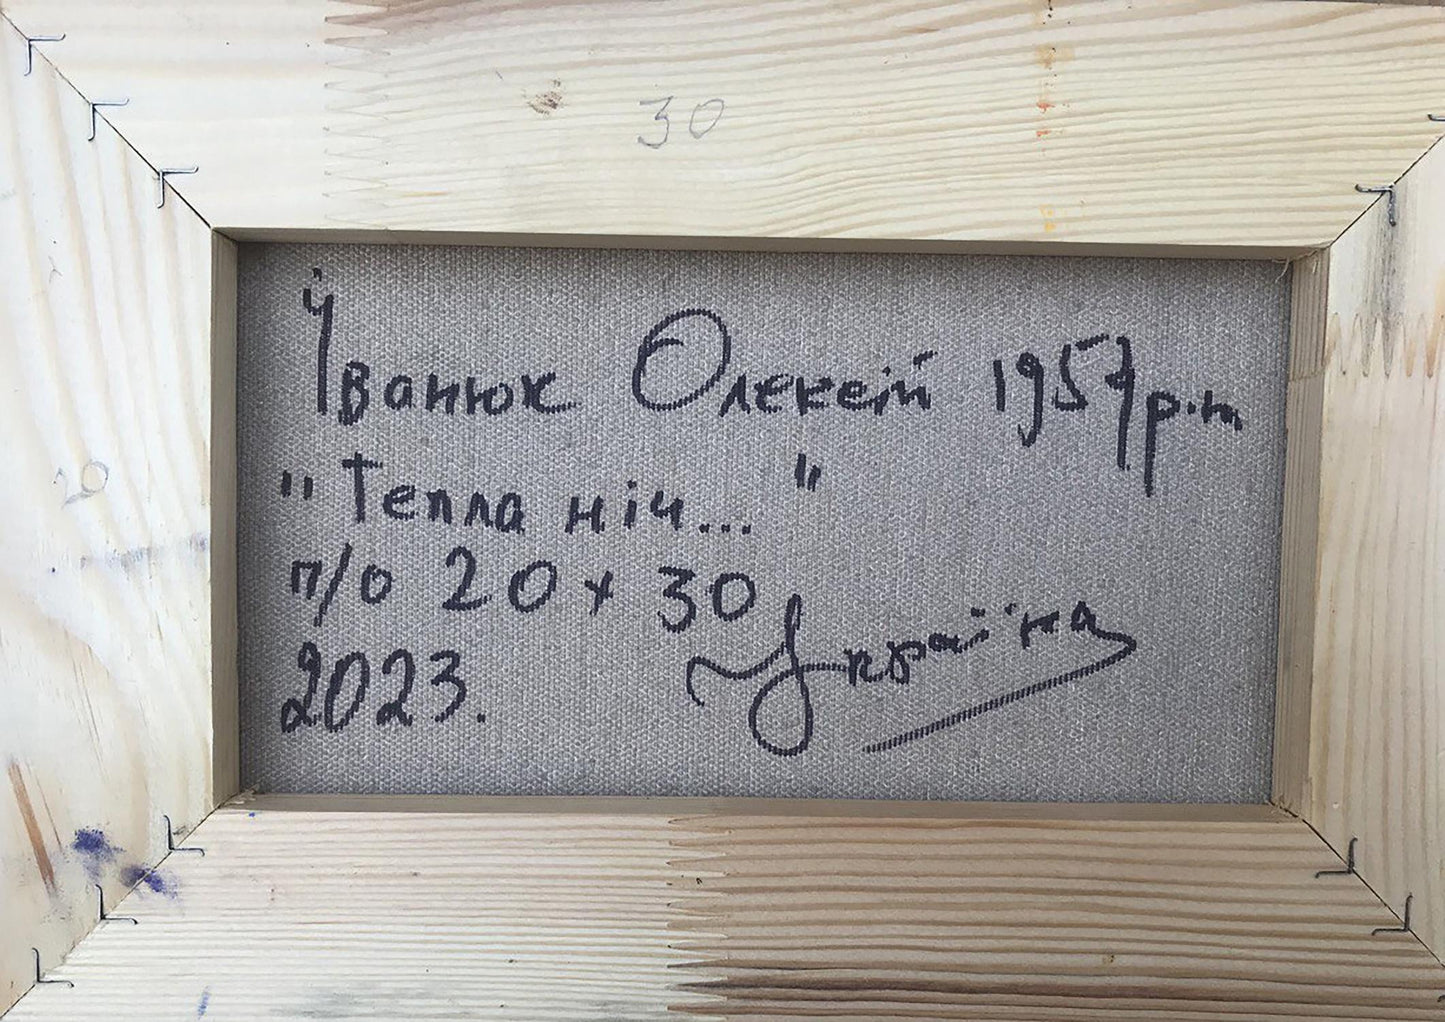 30
Іванюк Олексій 1957 р.н
"Тепла ніч... "
п/о 20 х 30
2023.
Україна
20